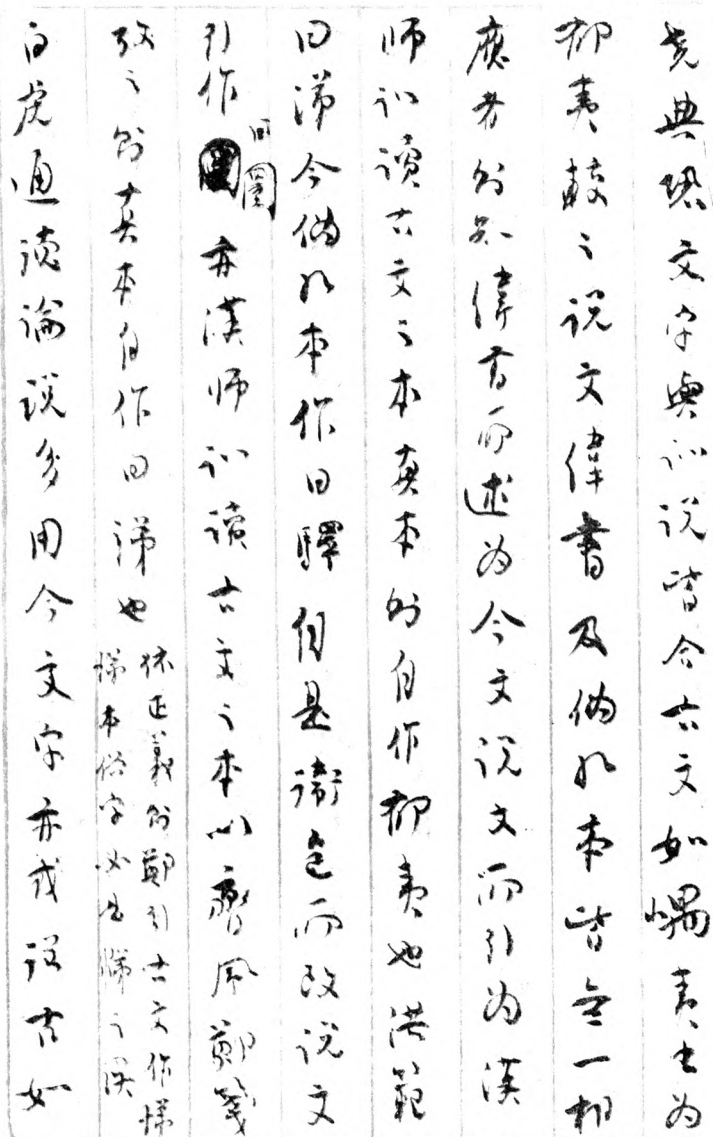 堯典恐文字與訓說皆合古文如嵎夷之為
郁夷較之說文緯書及偽孔本皆無一相
應者則知緯書所述為今文說文所引為漢
師訓讀古文之本真本則自作郁夷也洪範
曰涕今偽孔本作曰驛自是衛包所改說文
引作曰圛亦漢師訓讀古文之本以齊風鄭箋
證之則真本自作曰涕也
據正義則鄭引古文作悌
悌本俗字必是涕之誤
白虎通德論說多用今文字亦或從古如